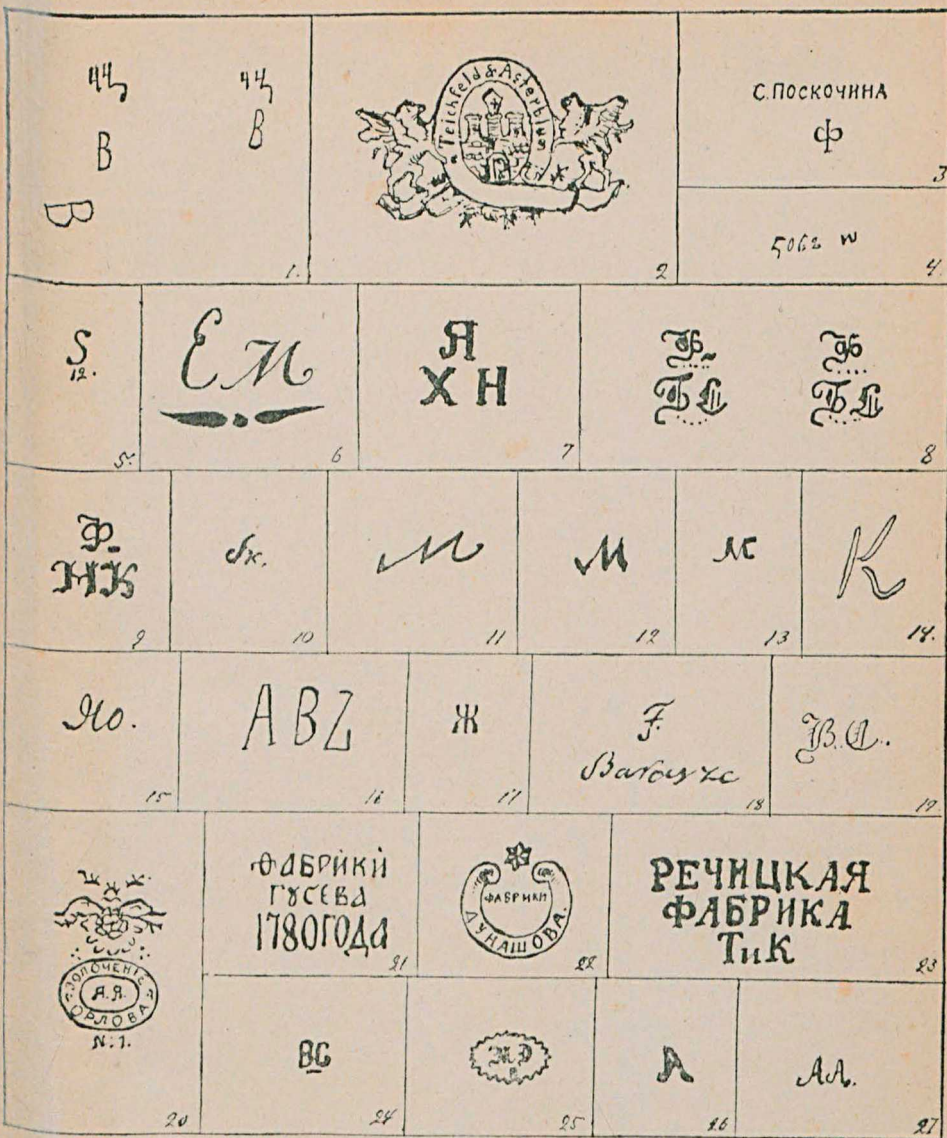 чц чц
В В
В
1.
Teichfeld & Asterblum
2
С. ПОСКОЧИНА
Ф
3
5062 w
4.
S
12.
5.
ЕМ
6
Я
Х Н
7
Ф. Ф
БС БС
8
Ф.
НК
9
10
М
11
М
12
М
13
К
14.
Яо.
15
ABZ
16
Ж
17
F.
18
В.С.
19
ЗОЛОЧЕНІЕ
А.Я.
ОРЛОВА
N: 1.
20
ФАБРИКИ
ГУСЕВА
1780 ГОДА
21
ФАБРИКИ
ДУНАШОВА.
22
РЕЧИЦКАЯ
ФАБРИКА
ТиК
23
ВС
24
25
А
26
АА.
27